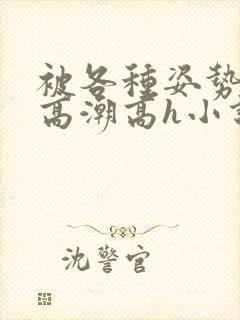 被各種姿勢
高潮高h小
沈警官